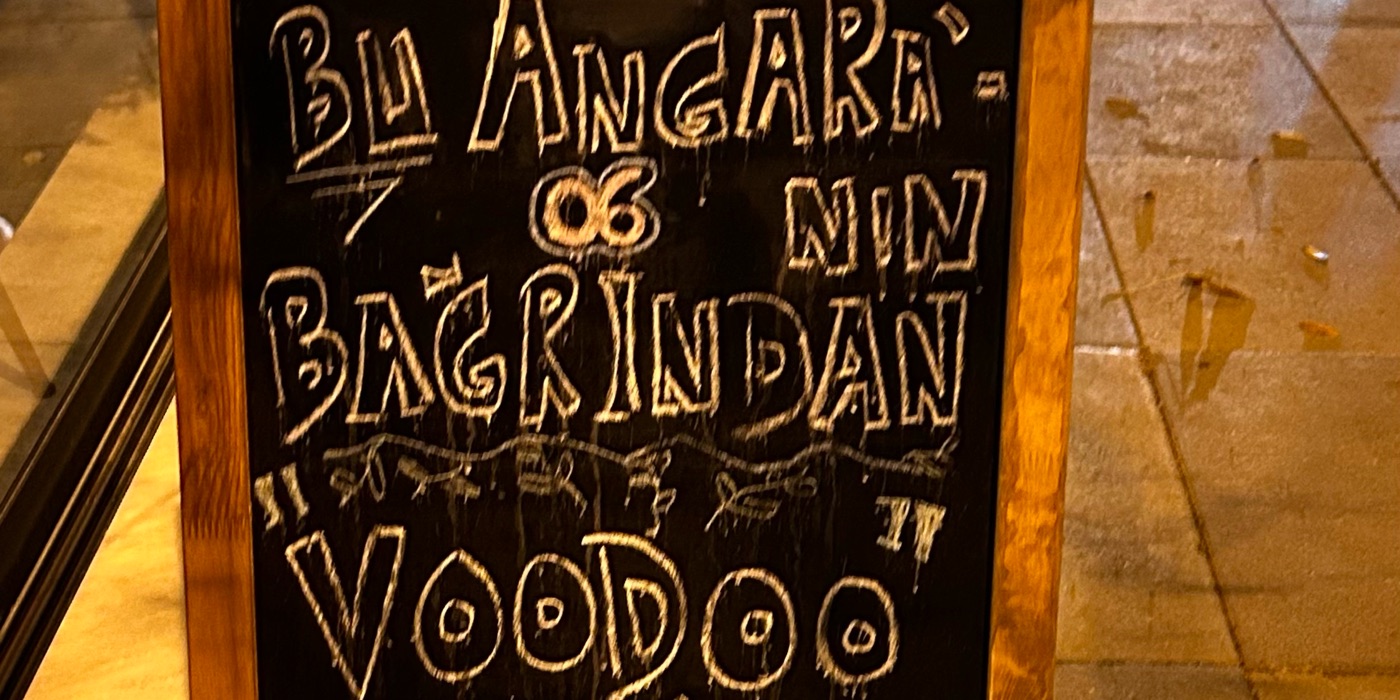 BU ANGARA'-
06 NIN
BAĞRINDAN
"VOODOO"